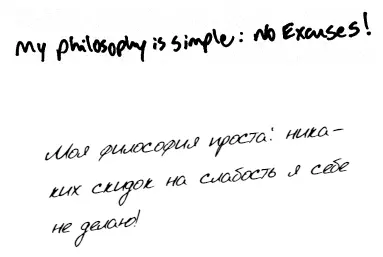 My philosophy is simple: no Excuses!
Моя философия проста: ника-
ких скидок на слабость я себе
не делаю!